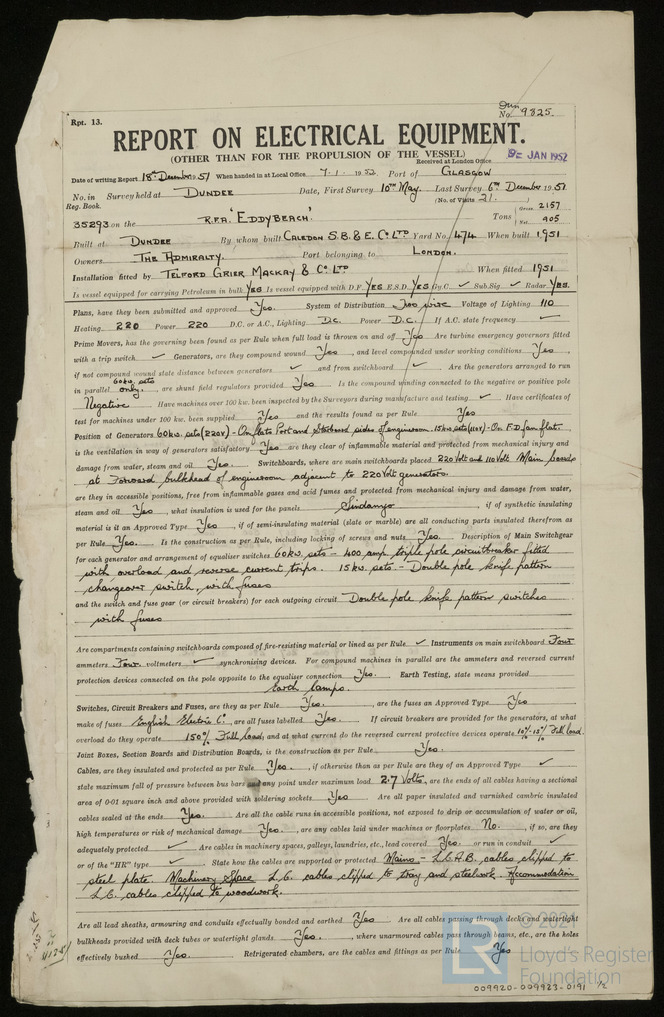 Rpt. 13.
Dun
No. 9825.
REPORT ON ELECTRICAL EQUIPMENT.
(OTHER THAN FOR THE PROPULSION OF THE VESSEL)
Received at London Office 9 JAN 1952
Date of writing Report 18th December 1951 When handed in at Local Office 7.1.1952 Port of GLASGOW
No. in Survey held at DUNDEE Date, First Survey 10th May. Last Survey 6th December 1951
Reg. Book. (No. of Visits 21.)
35293 on the R.F.A. 'EDDYBEACH'. Tons Gross 2157 Net 905
Built at DUNDEE By whom built CALEDON S.B. & E. Co LTD Yard No. 474 When built 1951
Owners THE ADMIRALTY. Port belonging to LONDON.
Installation fitted by TELFORD GRIER MACKAY & Co LTD When fitted 1951
Is vessel equipped for carrying Petroleum in bulk YES Is vessel equipped with D.F. YES E.S.D. YES Gy.C. ✓ Sub.Sig. ✓ Radar YES.
Plans, have they been submitted and approved Yes. System of Distribution Two wire Voltage of Lighting 110
Heating 220 Power 220 D.C. or A.C., Lighting D.C. Power D.C. If A.C. state frequency ✓
Prime Movers, has the governing been found as per Rule when full load is thrown on and off Yes Are turbine emergency governors fitted
with a trip switch ✓ Generators, are they compound wound Yes, and level compounded under working conditions Yes,
if not compound wound state distance between generators ✓ and from switchboard ✓ Are the generators arranged to run
in parallel 60kw. sets only., are shunt field regulators provided Yes Is the compound winding connected to the negative or positive pole
Negative Have machines over 100 kw. been inspected by the Surveyors during manufacture and testing ✓ Have certificates of
test for machines under 100 kw. been supplied Yes and the results found as per Rule Yes
Position of Generators 60kw. sets (220V) - On flats Port and Starboard sides of engineroom. 15kw. sets (110V) - On F.D. fan flat.
is the ventilation in way of generators satisfactory Yes are they clear of inflammable material and protected from mechanical injury and
damage from water, steam and oil Yes. Switchboards, where are main switchboards placed 220 Volt and 110 Volt Main boards
at Forward bulkhead of engineroom adjacent to 220 Volt generators.
are they in accessible positions, free from inflammable gases and acid fumes and protected from mechanical injury and damage from water,
steam and oil Yes, what insulation is used for the panels Sindanyo, if of synthetic insulating
material is it an Approved Type Yes, if of semi-insulating material (slate or marble) are all conducting parts insulated therefrom as
per Rule Yes. Is the construction as per Rule, including locking of screws and nuts Yes. Description of Main Switchgear
for each generator and arrangement of equaliser switches 60kw. sets - 400 amp. triple pole circuitbreaker fitted
with overload and reverse current trips. 15kw. sets. - Double pole knife pattern
changeover switch, with fuses
and the switch and fuse gear (or circuit breakers) for each outgoing circuit Double pole knife pattern switches
with fuses
Are compartments containing switchboards composed of fire-resisting material or lined as per Rule ✓ Instruments on main switchboard Four
ammeters Four voltmeters ✓ synchronising devices. For compound machines in parallel are the ammeters and reversed current
protection devices connected on the pole opposite to the equaliser connection Yes. Earth Testing, state means provided
Earth lamps.
Switches, Circuit Breakers and Fuses, are they as per Rule Yes., are the fuses an Approved Type Yes
make of fuses English Electric Co, are all fuses labelled Yes. If circuit breakers are provided for the generators, at what
overload do they operate 150% Full load, and at what current do the reversed current protective devices operate 10%-15% Full load.
Joint Boxes, Section Boards and Distribution Boards, is the construction as per Rule Yes.
Cables, are they insulated and protected as per Rule Yes., if otherwise than as per Rule are they of an Approved Type ✓
state maximum fall of pressure between bus bars and any point under maximum load 2.7 Volts, are the ends of all cables having a sectional
area of 0·01 square inch and above provided with soldering sockets Yes Are all paper insulated and varnished cambric insulated
cables sealed at the ends Yes. Are all the cable runs in accessible positions, not exposed to drip or accumulation of water or oil,
high temperatures or risk of mechanical damage Yes., are any cables laid under machines or floorplates No., if so, are they
adequately protected ✓ Are cables in machinery spaces, galleys, laundries, etc., lead covered Yes. or run in conduit ✓
or of the "HR" type ✓ State how the cables are supported or protected Mains - L.C.A.B. cables clipped to
steel plate. Machinery Space L.C. cables clipped to tray and steelwork. Accommodation
L.C. cables clipped to woodwork.
Are all lead sheaths, armouring and conduits effectually bonded and earthed Yes Are all cables passing through decks and watertight
bulkheads provided with deck tubes or watertight glands Yes., where unarmoured cables pass through beams, etc., are the holes
effectively bushed Yes. Refrigerated chambers, are the cables and fittings as per Rule Yes
© 2021
LR
Lloyd's Register
Foundation
009920-009923-0191 1/2